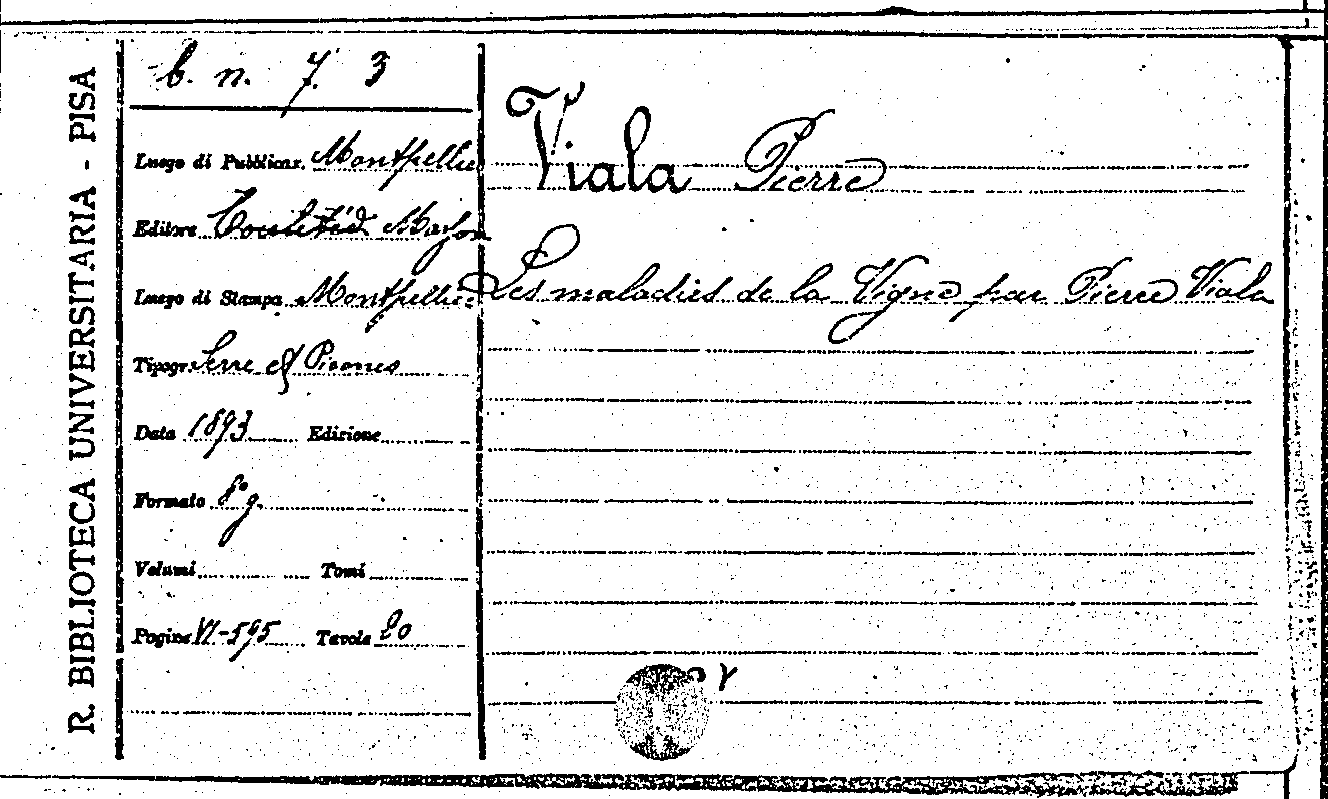 R. BIBLIOTECA UNIVERSITARIA - PISA
b. n. 7. 3
Luogo di Pubblicaz. Montpellier
Editore Coulet Masson
Luogo di Stampa Montpellier
Tipogr. Serre & Ricomes
Data 1893 Edizione
Formato 8° g.
Volumi Tomi
Pagine VI-595 Tavole 20
Viala Pierre
Les maladies de la Vigne par Pierre Viala